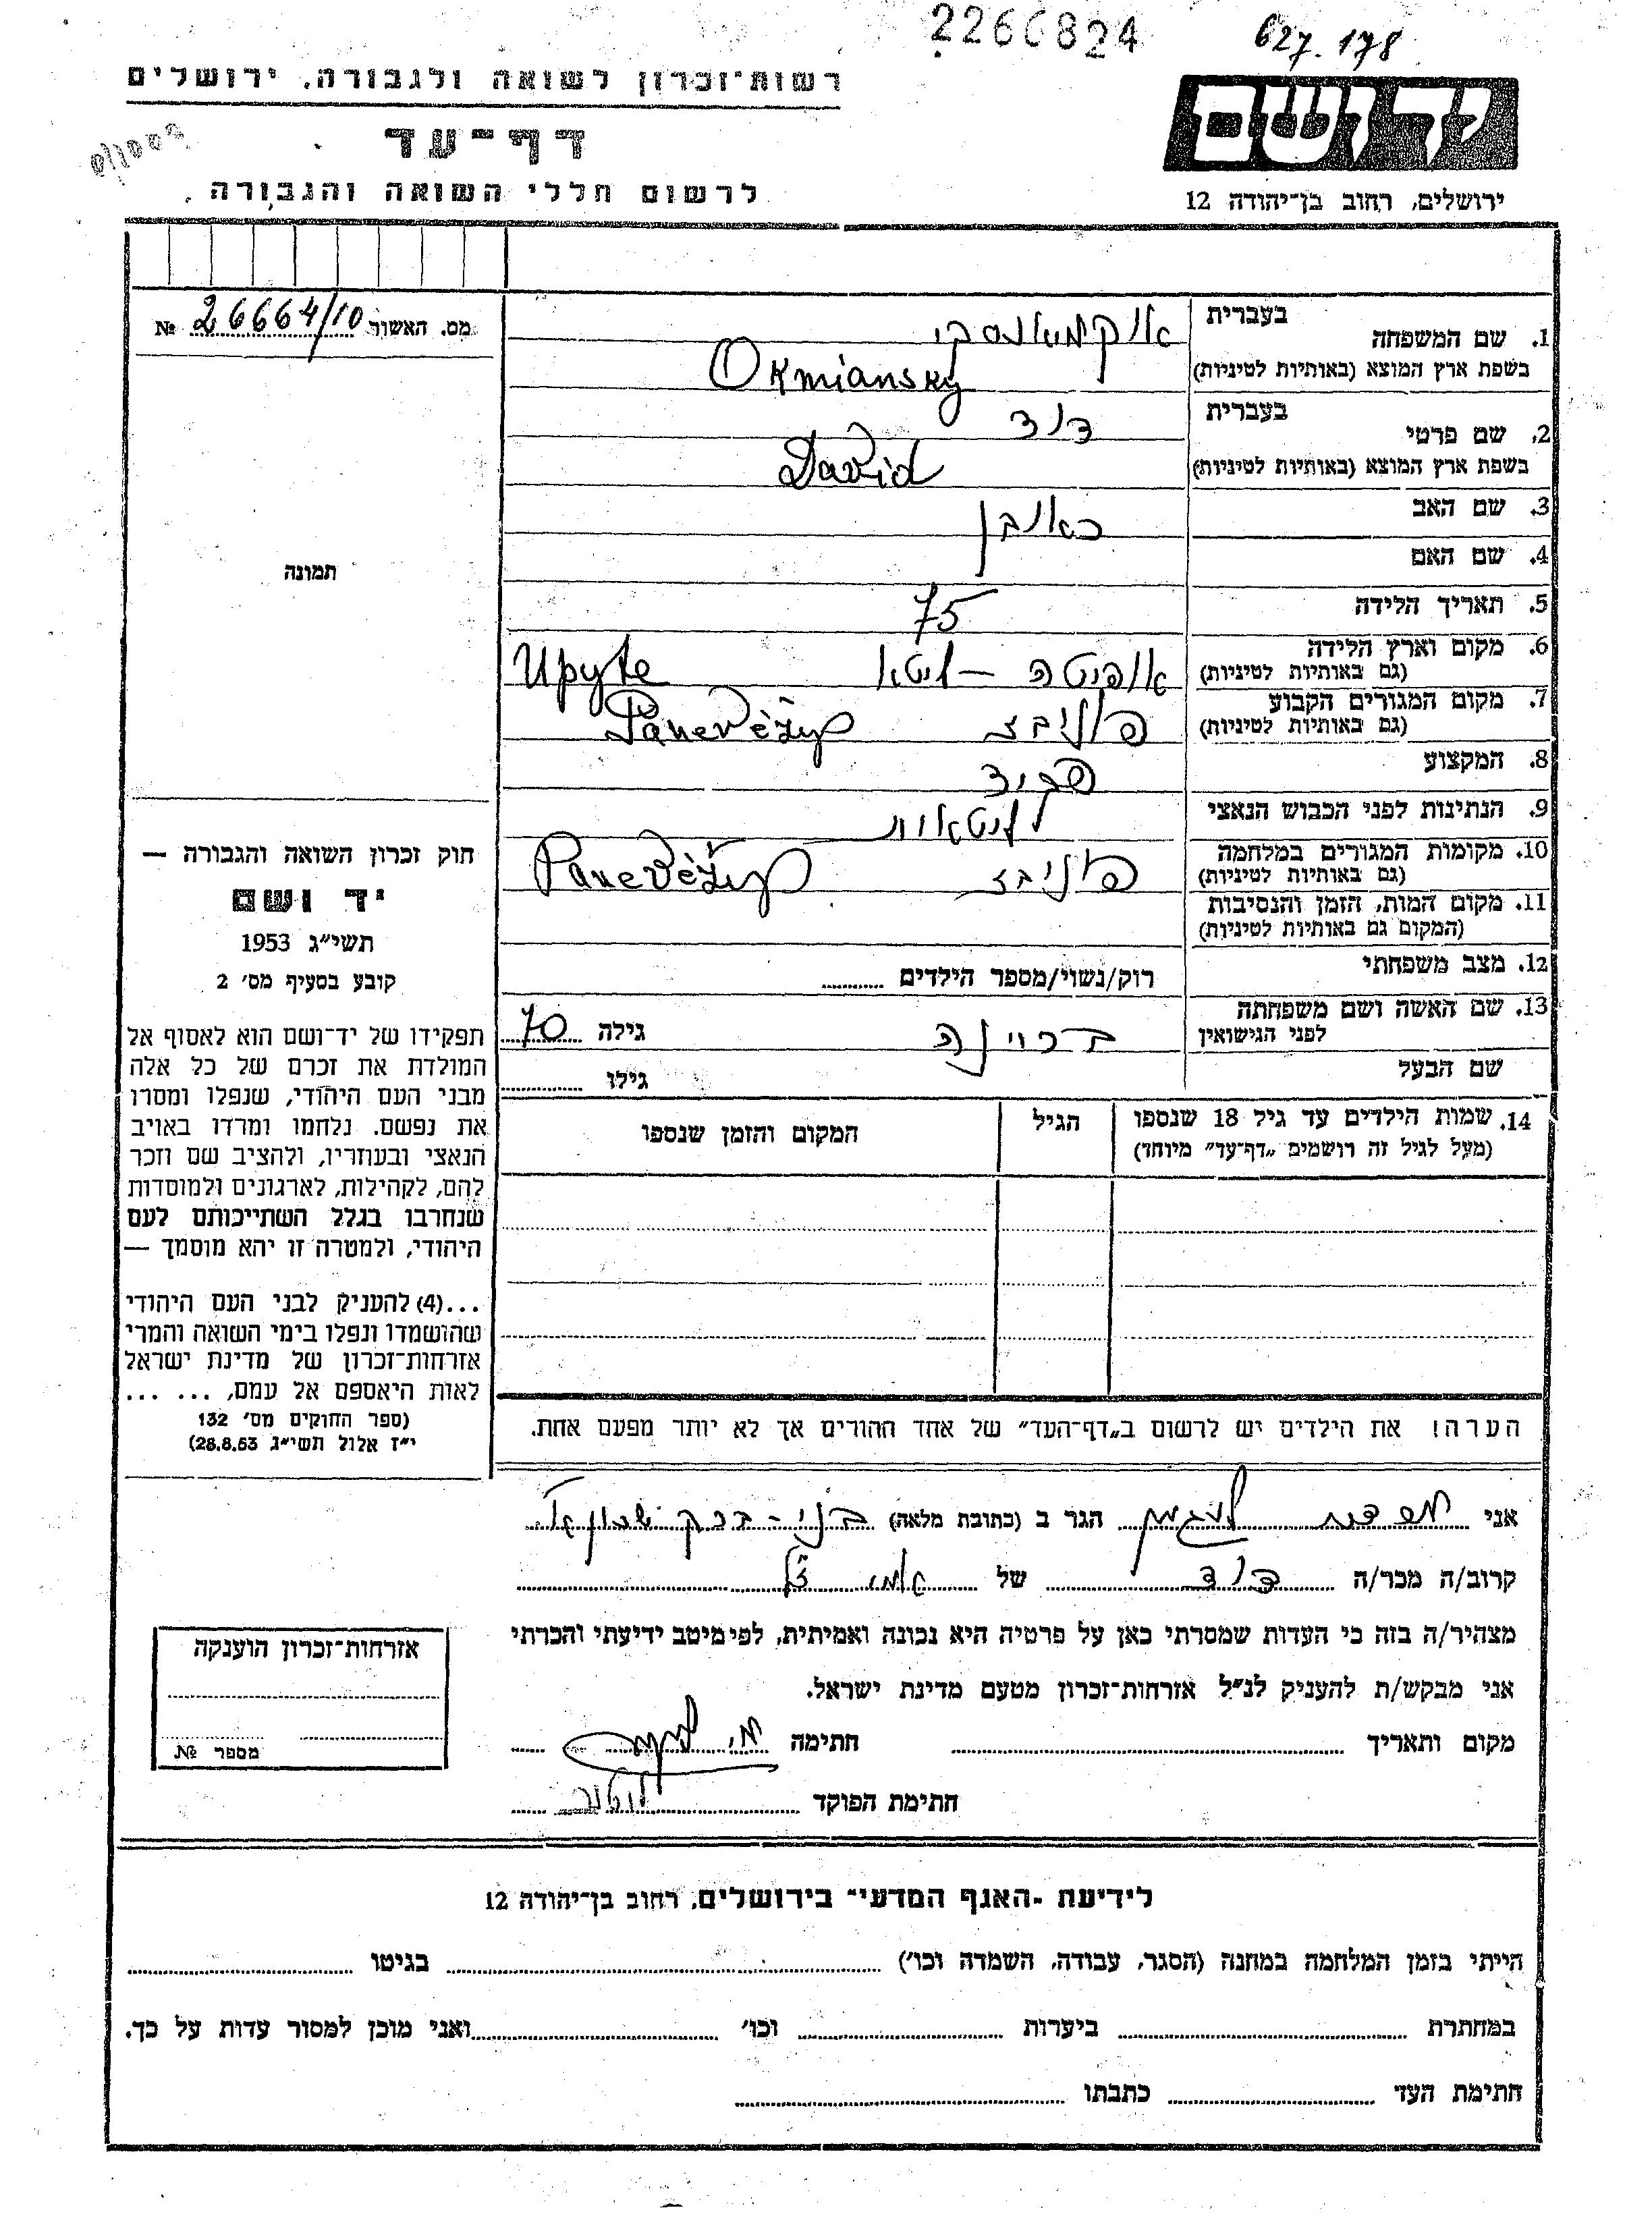 2266824
627.178
רשות־זכרון לשואה ולגבורה, ירושלים
יד ושם
דף־עד
לרשום חללי השואה והגבורה
ירושלים, רחוב בן־יהודה 12
מס. האשור 26664/10 №
1. שם המשפחה בעברית אוקמיאנסקי
בשפת ארץ המוצא (באותיות לטיניות) Okmiansky
2. שם פרטי בעברית דוד
בשפת ארץ המוצא (באותיות לטיניות) David
3. שם האב ראובן
4. שם האם
5. תאריך הלידה 75
6. מקום וארץ הלידה (גם באותיות לטיניות) אופיטה – ליטא Upyte
7. מקום המגורים הקבוע (גם באותיות לטיניות) פוניבז Panevėžys
8. המקצוע
9. הנתינות לפני הכבוש הנאצי ליטאית
10. מקומות המגורים במלחמה (גם באותיות לטיניות) פוניבז Panevėžys
11. מקום המות, הזמן והנסיבות
(המקום גם באותיות לטיניות)
12. מצב משפחתי רוק/נשוי/מספר הילדים
13. שם האשה ושם משפחתה לפני הנישואין ברוינה גילה 70
שם הבעל גילו
14. שמות הילדים עד גיל 18 שנספו הגיל המקום והזמן שנספו
(מעל לגיל זה רושמים „דף־עד״ מיוחד)
הערה: את הילדים יש לרשום ב„דף־העד״ של אחד ההורים אך לא יותר מפעם אחת.
תמונה
חוק זכרון השואה והגבורה —
יד ושם
תשי״ג 1953
קובע בסעיף מס׳ 2
תפקידו של יד־ושם הוא לאסוף אל
המולדת את זכרם של כל אלה
מבני העם היהודי, שנפלו ומסרו
את נפשם. נלחמו ומרדו באויב
הנאצי ובעוזריו, ולהציב שם וזכר
להם, לקהילות, לארגונים ולמוסדות
שנחרבו בגלל השתייכותם לעם
היהודי, ולמטרה זו יהא מוסמך —
...(4) להעניק לבני העם היהודי
שהושמדו ונפלו בימי השואה והמרי
אזרחות־זכרון של מדינת ישראל
לאות היאספם אל עמם, ... ...
(ספר החוקים מס׳ 132
י״ז אלול תשי״ג 28.8.53)
אני הגר ב (כתובת מלאה) בני-ברק
קרוב/ה מכר/ה דוד של אמי ז״ל
מצהיר/ה בזה כי העדות שמסרתי כאן על פרטיה היא נכונה ואמיתית, לפי מיטב ידיעתי והכרתי
אני מבקש/ת להעניק לנ״ל אזרחות־זכרון מטעם מדינת ישראל.
מקום ותאריך חתימה
חתימת הפוקד
אזרחות־זכרון הוענקה
מספר №
לידיעת ״האגף המדעי״ בירושלים, רחוב בן־יהודה 12
הייתי בזמן המלחמה במחנה (הסגר, עבודה, השמדה וכו׳) בגיטו
במחתרת ביערות וכו׳ ואני מוכן למסור עדות על כך.
חתימת העד כתבתו